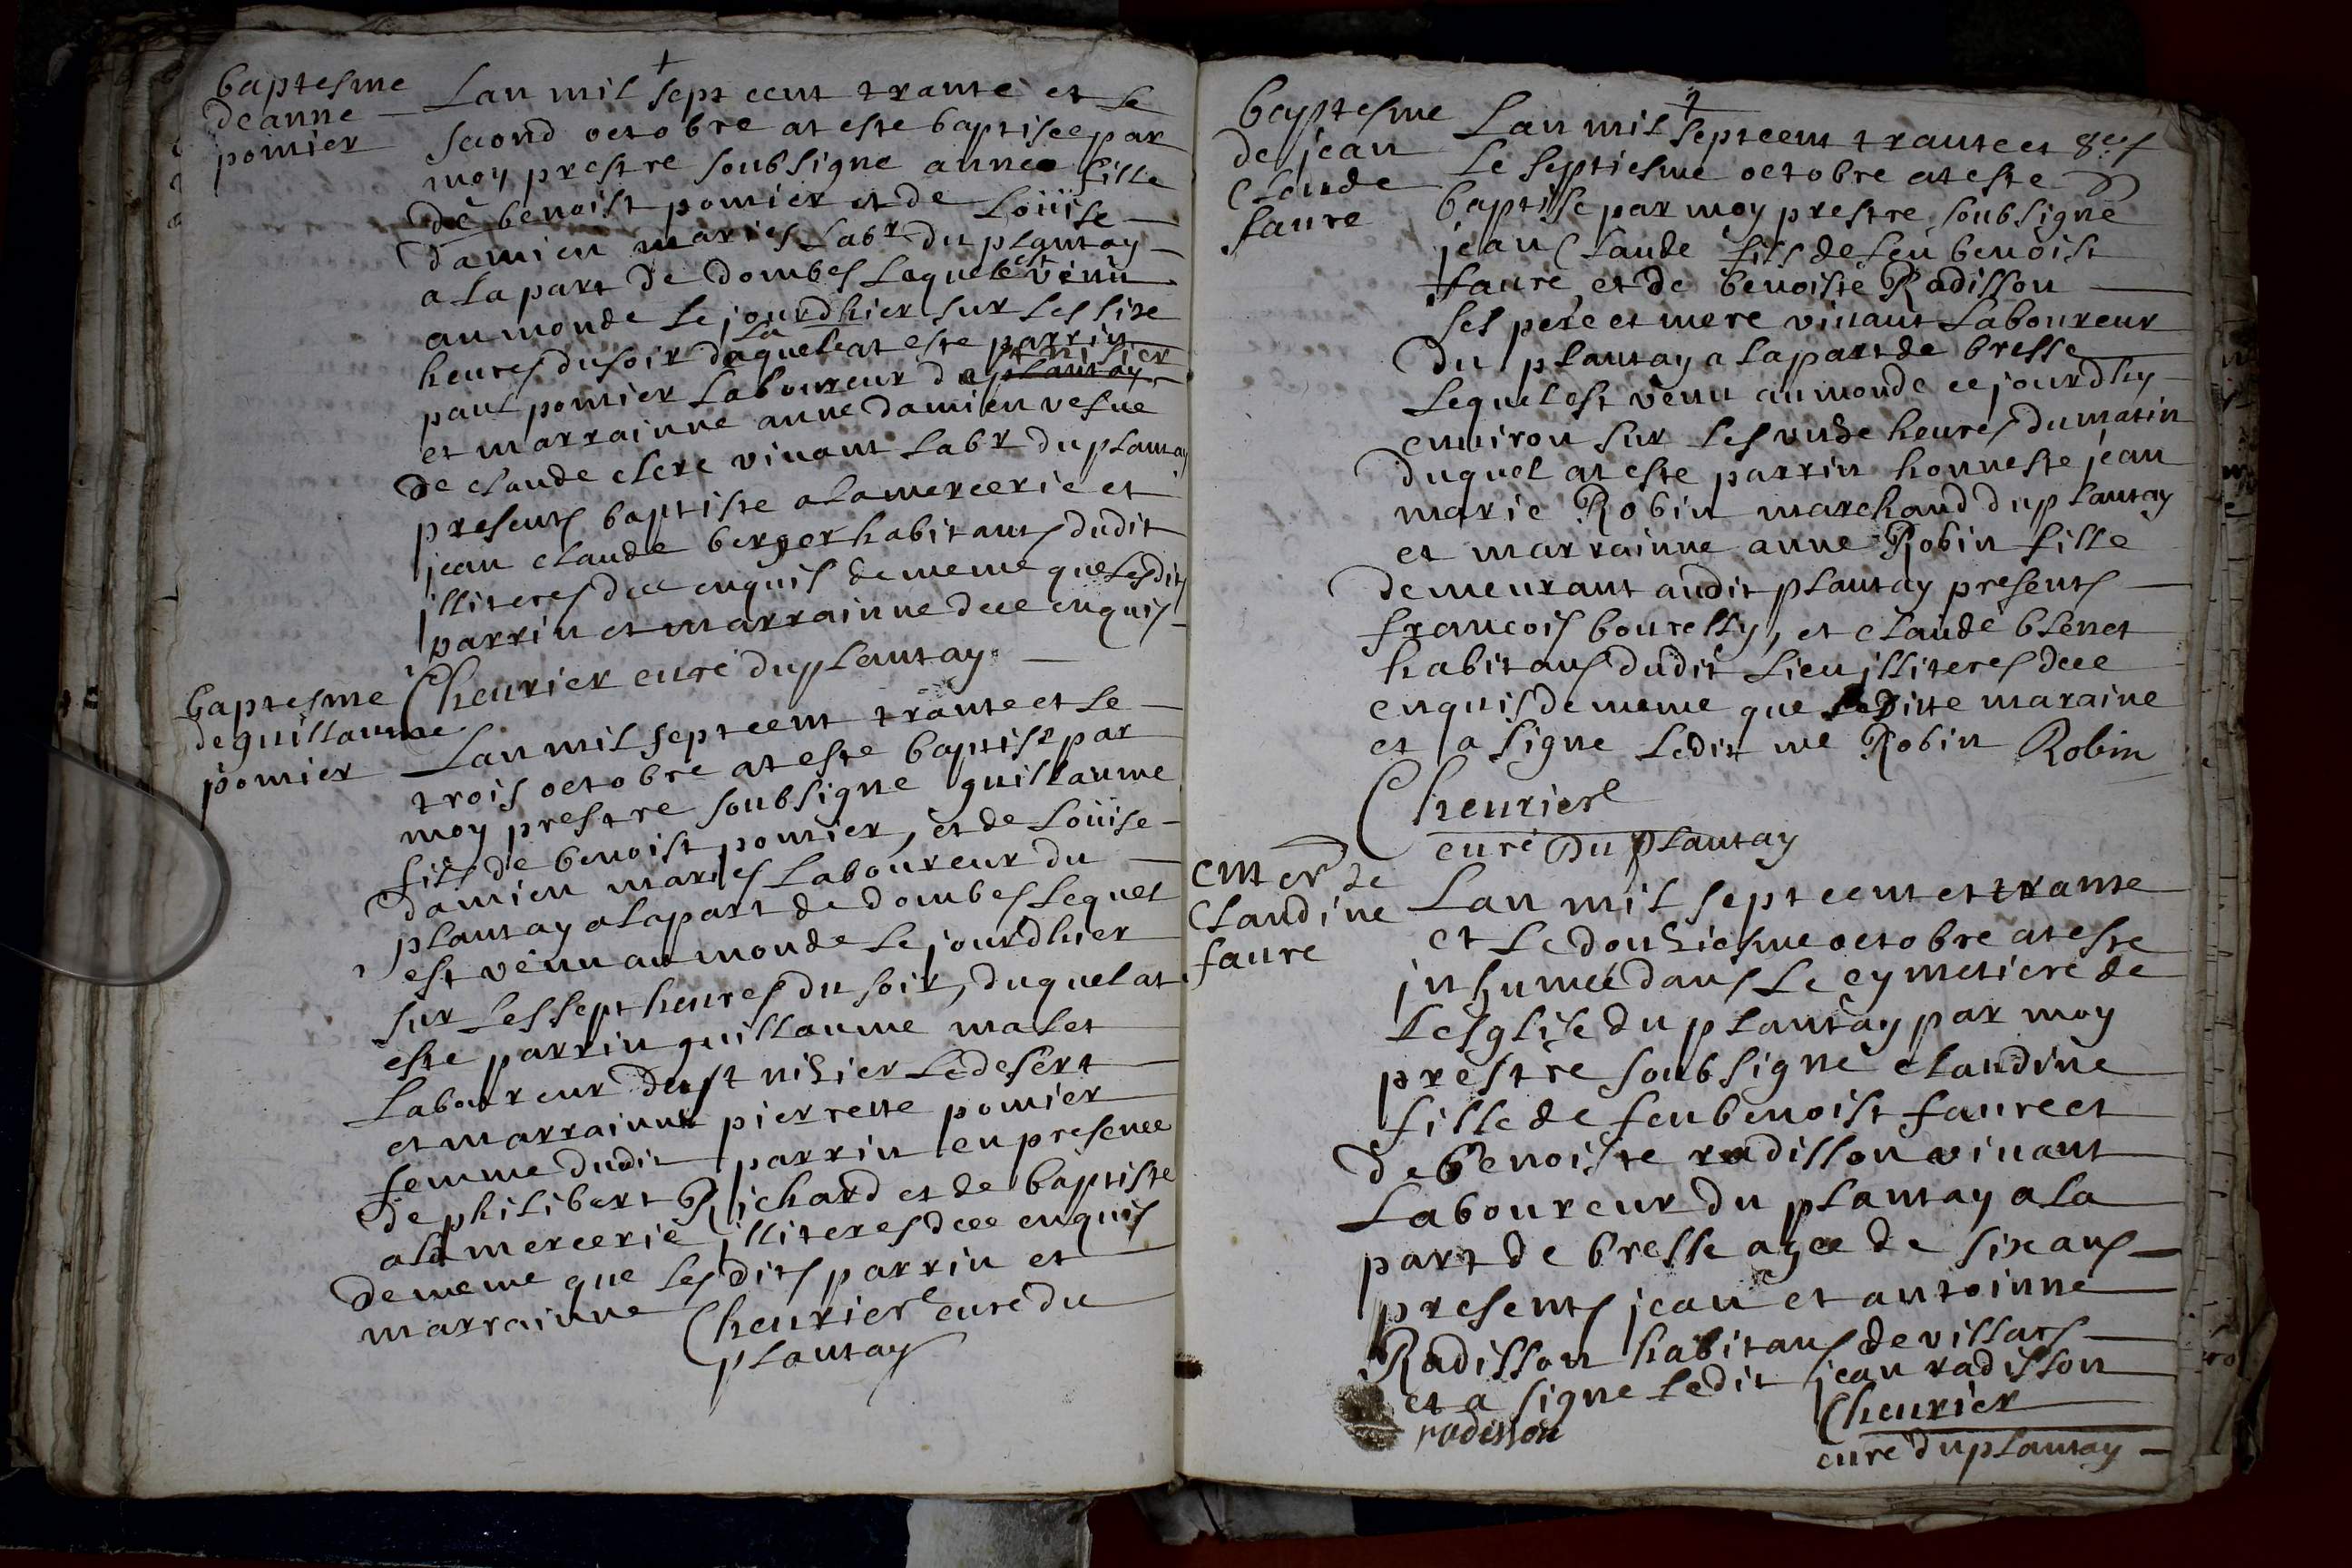 baptesme
deanne
pomier
Lan mil sept cent trante et le
second octobre at este baptisee par
moy prestre soubsigne annee fille
de benoist pomier et de Loüise
damien maries Labr du plantay
a la part de dombes laquele est venu
au monde le jourdhier sur les sixe
heures du soir de laquele at este parrin
paul pomier laboureur de st nisier
plantay
et marrainne anne damien vefue
de claude clerc vivant labr du plantay
presents baptiste alamercerie et
jean claude berger habitants dudit
illiteres dece enquis de meme que lesdits
parrin et marrainne dece enquis
Cheurier curé du plantay
baptesme
de guillaume
pomier
Lan mil sept cent trante et le
trois octobre at este baptise par
moy prestre soubsigne guillaume
fils de benoist pomier, et de Loüise
damien maries laboureur du
plantay a la part de dombes lequel
est venu au monde le jourdhier
sur les sept heures du soir, duquel at
este parrin guillaume malet
laboureur de st nizier le desert
et marrainne pierrette pomier
femme dudit parrin en presence
de philibert Richard et de baptiste
ala mercerie illiteres dece enquis
de meme que lesdits parrin et
marrainne Cheurier curé du
plantay
baptesme
de jean
Claude
faure
Lan mil sept cent trante et
le septiesme octobre at este
baptisse par moy prestre soubsigné
jean Claude fils de feu benoist
faure, et de benoiste Radisson
ses pere et mere vivant laboureur
du plantay a la part de bresse
lequel est venu au monde ce jourdhy
environ sur les unze heures du matin
duquel at este parrin honneste jean
marie Robin marchand du plantay
et marrainne anne Robin fille
demeurant audit plantay presents
francois bourelly, et claude blenet
habitans dudit lieu illiteres dece
enquis de meme que ladite maraine
et a signe ledit me Robin Robin
Cheurier
curé du plantay
enter de
Claudine
faure
Lan mil sept cent et trante
et le douziesme octobre at este
inhumée dans le cymetiere de
lesglise du plantay par moy
prestre soubsigné claudine
fille de feu benoist faure et
de benoiste radisson vivant
laboureur du plantay a la
part de bresse agee de sixe ans
presents jean et antoinne
Radisson habitans de villars
et a signe ledit jean radisson
radisson
Cheurier
curé du plantay